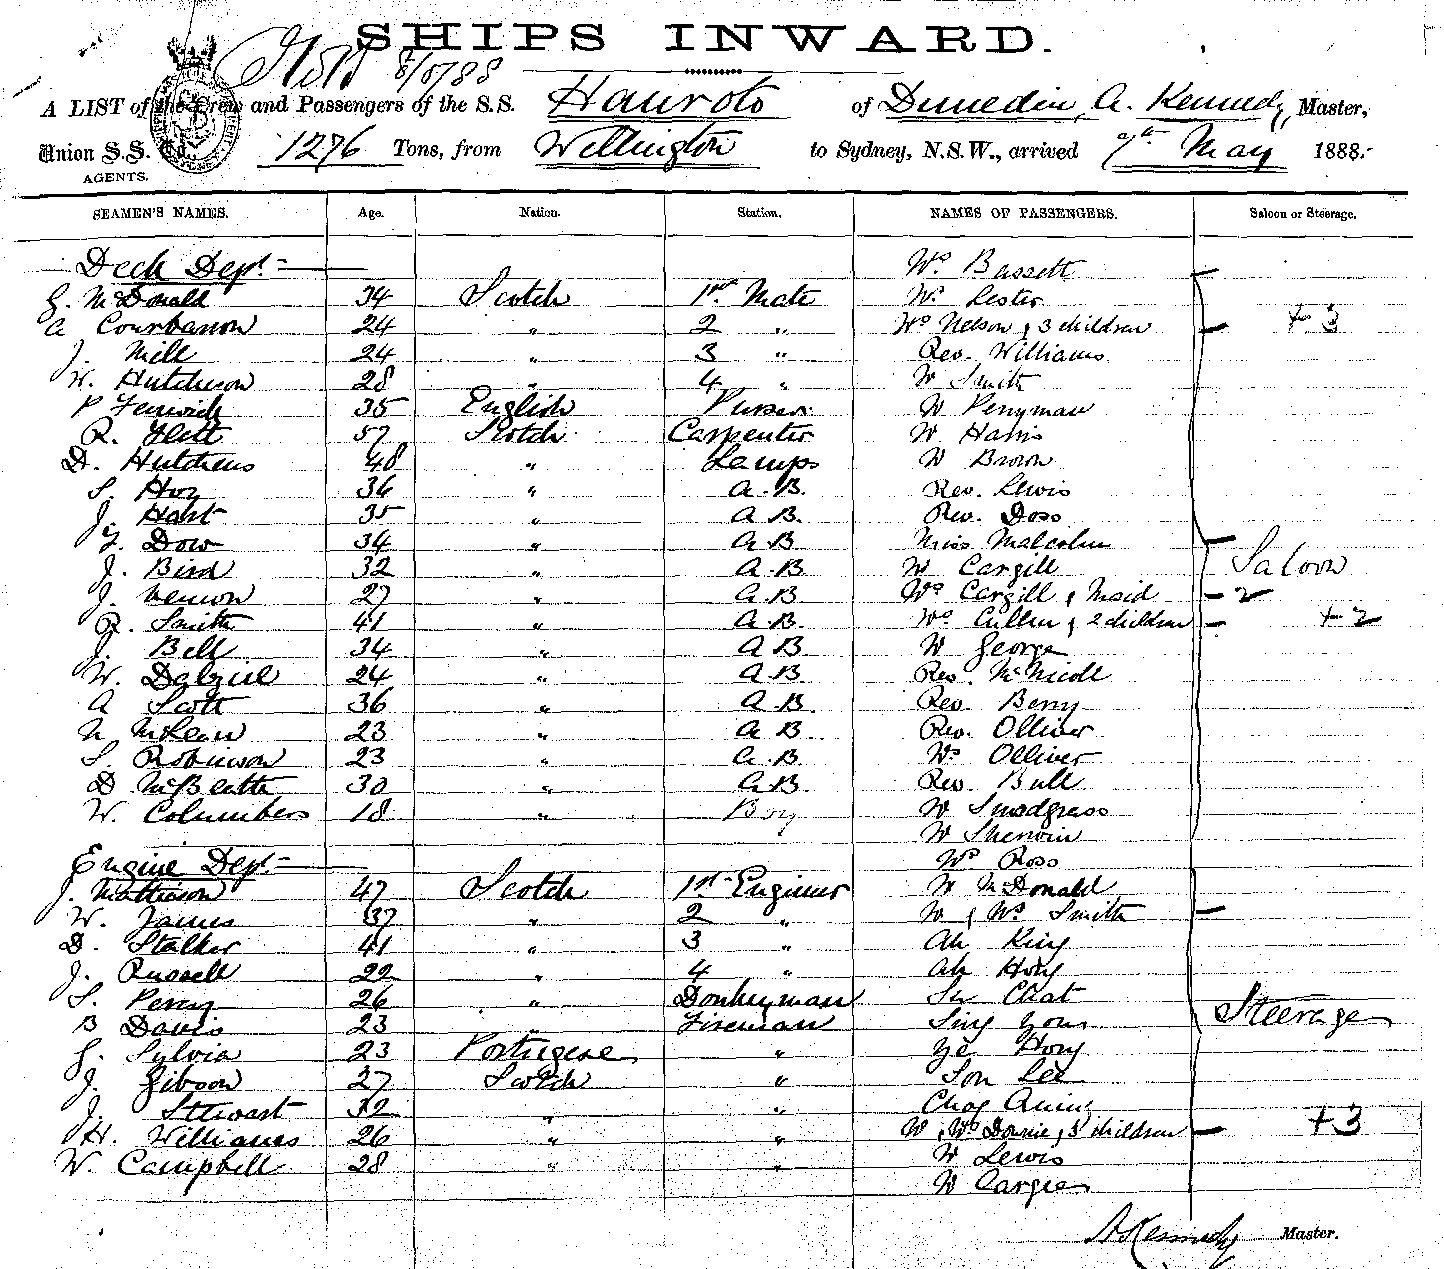 SHIPS INWARD.
8/5/88
A LIST of the Crew and Passengers of the S.S. Hauroto of Dunedin, A. Kennedy, Master,
Union S.S. Co. 1276 Tons, from Wellington to Sydney, N.S.W., arrived 7th May 1888.
AGENTS.
SEAMEN'S NAMES. Age. Nation. Station. NAMES OF PASSENGERS. Saloon or Steerage.
Deck Dept. Mrs Bassett
G. McDonald 34 Scotch 1st Mate Mr Lester
A Courbarron 24 " 2 " Mrs Nelson & 3 children + 3
J. Mill 24 " 3 " Rev. Williams
W. Hutcheson 28 " 4 " Mr Smith
P Fenwick 35 English Purser Mr Perryman
R. Flett 57 Scotch Carpenter Mr Harris
D. Hutchens 48 " Lamps Mr Brown
S. Hoy 36 " A.B. Rev. Lewis
J. Hart 35 " A.B. Rev. Doss
Y. Dow 34 " A.B Miss Malcolm
J. Bird 32 " A.B Mr Cargill Saloon
J. Vernon 27 " A.B Mrs Cargill & Maid - 2
R. Smith 41 " A.B Mrs Cullen & 2 children - + 2
J. Bell 34 " A B Mr George
W. Dalziel 24 " A.B Rev. McNicoll
A Scott 36 " A.B Rev. Berry
N McLean 23 " A B Rev. Olliver
S. Robinson 23 " A.B Mrs Olliver
D McBeath 30 " A.B Rev. Bull
W. Columbers 18 " Boy Mr Snodgrass
Mr Sherwin
Engine Dept. Mrs Ross
J. Mathieson 47 Scotch 1st Engineer Mr McDonald
W. James 37 " 2 " Mr & Mrs Smith -
D. Stalker 41 " 3 " Ah King
J. Russell 22 " 4 " Ah Hong
S. Percy 26 " Donkeyman Su Chat
B Davis 23 " Fireman Sing Youn Steerage
G. Sylvia 23 Portugese " Ye Hong
J. Gibson 27 Scotch " Son Lee
J. Stewart 32 " " Chog Quing
H. Williams 26 " " Mr, Mrs Downie & 3 children - + 3
W. Campbell 28 " " Mr Lewis
Mr Cargien
A Kennedy Master.